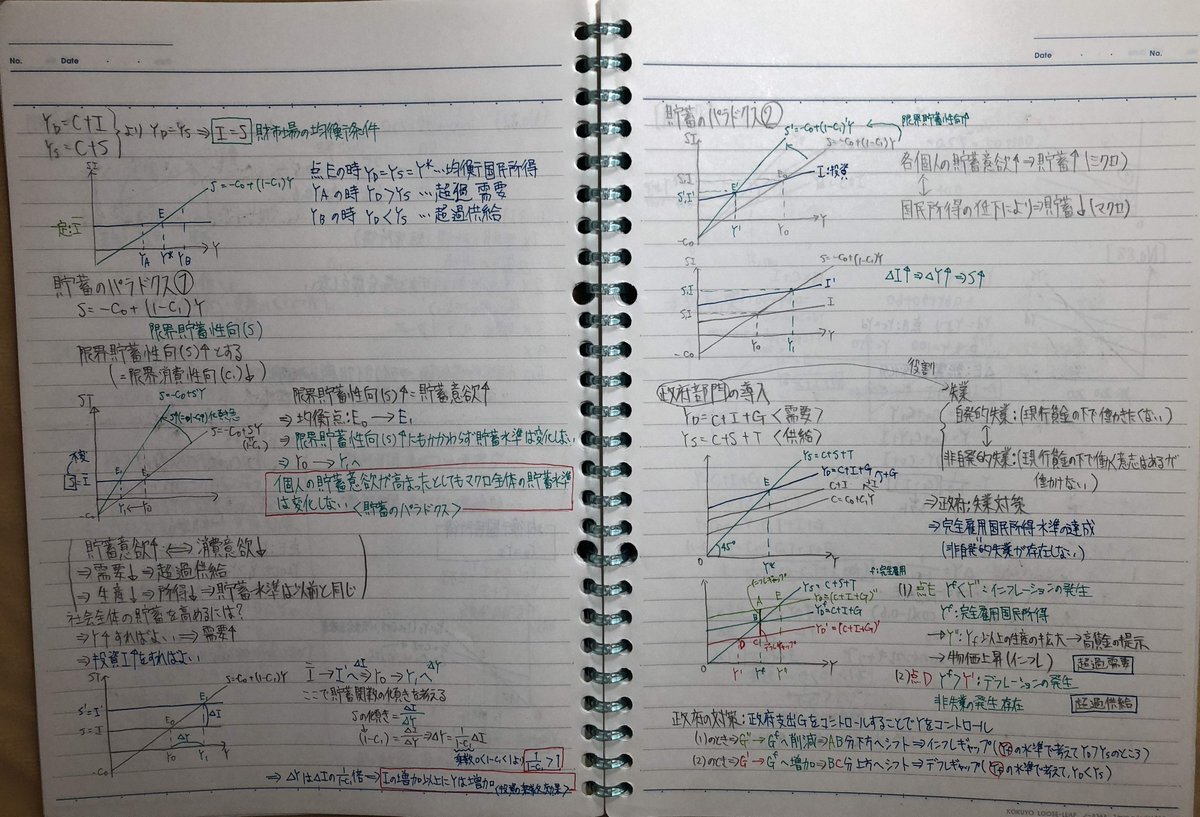 No.
Date
Y_D=C+I
Y_S=C+S
より Y_D=Y_S ⇒ I=S 財市場の均衡条件
SI
S=-C₀+(1-C₁)Y
点Eの時 Y_D=Y_S=Y*…均衡国民所得
Y_Aの時 Y_D>Y_S …超過需要
Y_Bの時 Y_D<Y_S …超過供給
E
Y_A Y* Y_B
Y
貯蓄のパラドクス①
S=-C₀+(1-C₁)Y
限界貯蓄性向(S)
限界貯蓄性向(S)↑とする
(=限界消費性向(C₁)↓)
SI
S=-C₀+S'Y
S=-C₀+SY
限界貯蓄性向(S)↑=貯蓄意欲↑
⇒均衡点:E₀→E₁
⇒限界貯蓄性向(S)↑にもかかわらず貯蓄水準は変化しない
⇒Y₀→Y₁へ
個人の貯蓄意欲が高まったとしてもマクロ全体の貯蓄水準
は変化しない<貯蓄のパラドクス>
不変
S=I
E₁ E₀
Y₁←Y₀
-C₀
貯蓄意欲↑⇔消費意欲↓
⇒需要↓⇒超過供給
⇒生産↓⇒所得↓⇒貯蓄水準は以前と同じ
社会全体の貯蓄を高めるには?
⇒Y↑すればよい⇒需要↑
⇒投資I↑をすればよい
SI
S=-C₀+(1-C₁)Y
ここで貯蓄関数の傾きを考える
Sの傾き=ΔI/ΔY
(1-C₁)=ΔI/ΔY⇒ΔY=1/(1-C₁)ΔI
乗数 0<1-C₁<1より 1/(1-C₁)>1
S'=I'
S=I
E₀
E₁
ΔI
ΔY
Y₀ Y₁ Y
-C₀
⇒ΔYはΔIの1/(1-C₁)倍⇒Iの増加以上にYは増加
<投資の乗数効果>
Date
No.
貯蓄のパラドクス②
SI
S'=-C₀+(1-C₁)'Y
限界貯蓄性向↑
S=-C₀+(1-C₁)Y
I:投資
S.I
S'.I'
Y' Y₀ Y
-C₀
各個人の貯蓄意欲↑⇒貯蓄↑(ミクロ)
国民所得の低下により⇒貯蓄↓(マクロ)
SI
S=-C₀+(1-C₁)Y
ΔI↑⇒ΔY↑⇒S↑
I'
I
S.I
Y₀ Y₁ Y
-C₀
政府部門の導入
役割
Y_D=C+I+G<需要>
Y_S=C+S+T<供給>
失業
自発的失業:(現行賃金の下で働かない)
非自発的失業:(現行賃金の下で働く意志はあるが
働けない)
⇒政府:失業対策
⇒完全雇用国民所得水準の達成
(非自発的失業が存在しない)
Y_S=C+S+T
Y_D=C+I+G
C+I
C=C₀+C₁Y
E
45°
0
Y*
Y
f:完全雇用
インフレギャップ
Y_S=C+S+T
Y_D''=(C+I+G)''
Y_D=C+I+G
Y_D'=(C+I+G)'
デフレギャップ
A
B
C
D
E
0
Y' Y^f Y'' Y
(1)点E Y^f<Y'':インフレーションの発生
Y^f:完全雇用国民所得
→Y'':Y_f以上の生産の拡大→高賃金の提示
→物価上昇(インフレ) 超過需要
(2)点D Y^f>Y':デフレーションの発生
非失業の発生存在 超過供給
政府の対策:政府支出GをコントロールすることでYをコントロール
(1)のとき⇒G''→G^fへ削減⇒AB分下方へシフト⇒インフレギャップ(Y_fの水準で考えてY_D>Y_Sのところ)
(2)のとき⇒G'→G^fへ増加⇒BC分上方へシフト⇒デフレギャップ(Y_fの水準で考えて、Y_D<Y_S)
KOKUYO LOOSE-LEAF